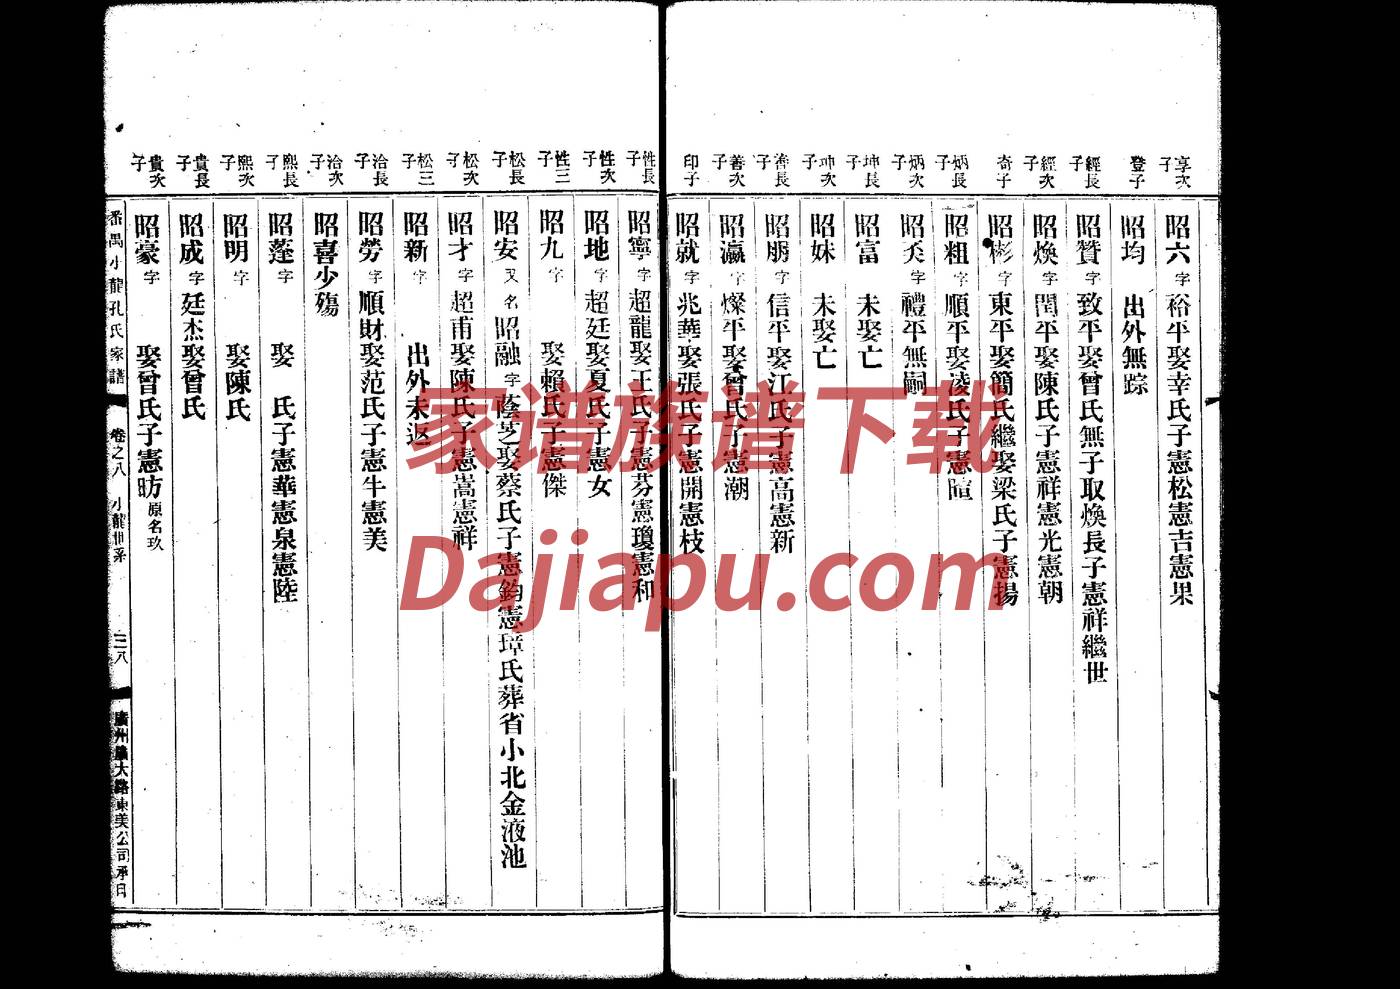 享次子
昭六 字 裕平娶幸氏子憲松憲吉憲果
登子
昭均 出外無踪
經長子
昭贊 字 致平娶曾氏無子取煥長子憲祥繼世
經次子
昭煥 字 閏平娶陳氏子憲祥憲光憲朝
奇子
昭彬 字 東平娶簡氏繼娶梁氏子憲揚
炳長子
昭粗 字 順平娶凌氏子憲暄
炳次子
昭 字 禮平無嗣
坤長子
昭富 未娶亡
坤次子
昭妹 未娶亡
善長子
昭朋 字 信平娶江氏子憲高憲新
善次子
昭瀛 字 燦平娶曾氏子憲潮
印子
昭就 字 兆華娶張氏子憲開憲枝
性長子
昭寧 字 超龍娶王氏子憲芬憲瓊憲和
性次子
昭地 字 超廷娶夏氏子憲女
性三子
昭九 字 娶賴氏子憲傑
松長子
昭安 又名 昭融 字 蔭芝娶蔡氏子憲鈞憲璋氏葬省小北金液池
松次子
昭才 字 超甫娶陳氏子憲嵩憲祥
松三子
昭新 字 出外未返
治長子
昭勞 字 順財娶范氏子憲牛憲美
治次子
昭喜少殤
熙長子
昭蓬 字 娶 氏子憲華憲泉憲陸
熙次子
昭明 字 娶陳氏
貴長子
昭成 字 廷杰娶曾氏
貴次子
昭豪 字 娶曾氏子憲昉 原名玖
番禺小龍孔氏家譜 卷之八 小龍世系 三八 廣州 大路東美公司承印
家谱族谱下载
Dajiapu.com